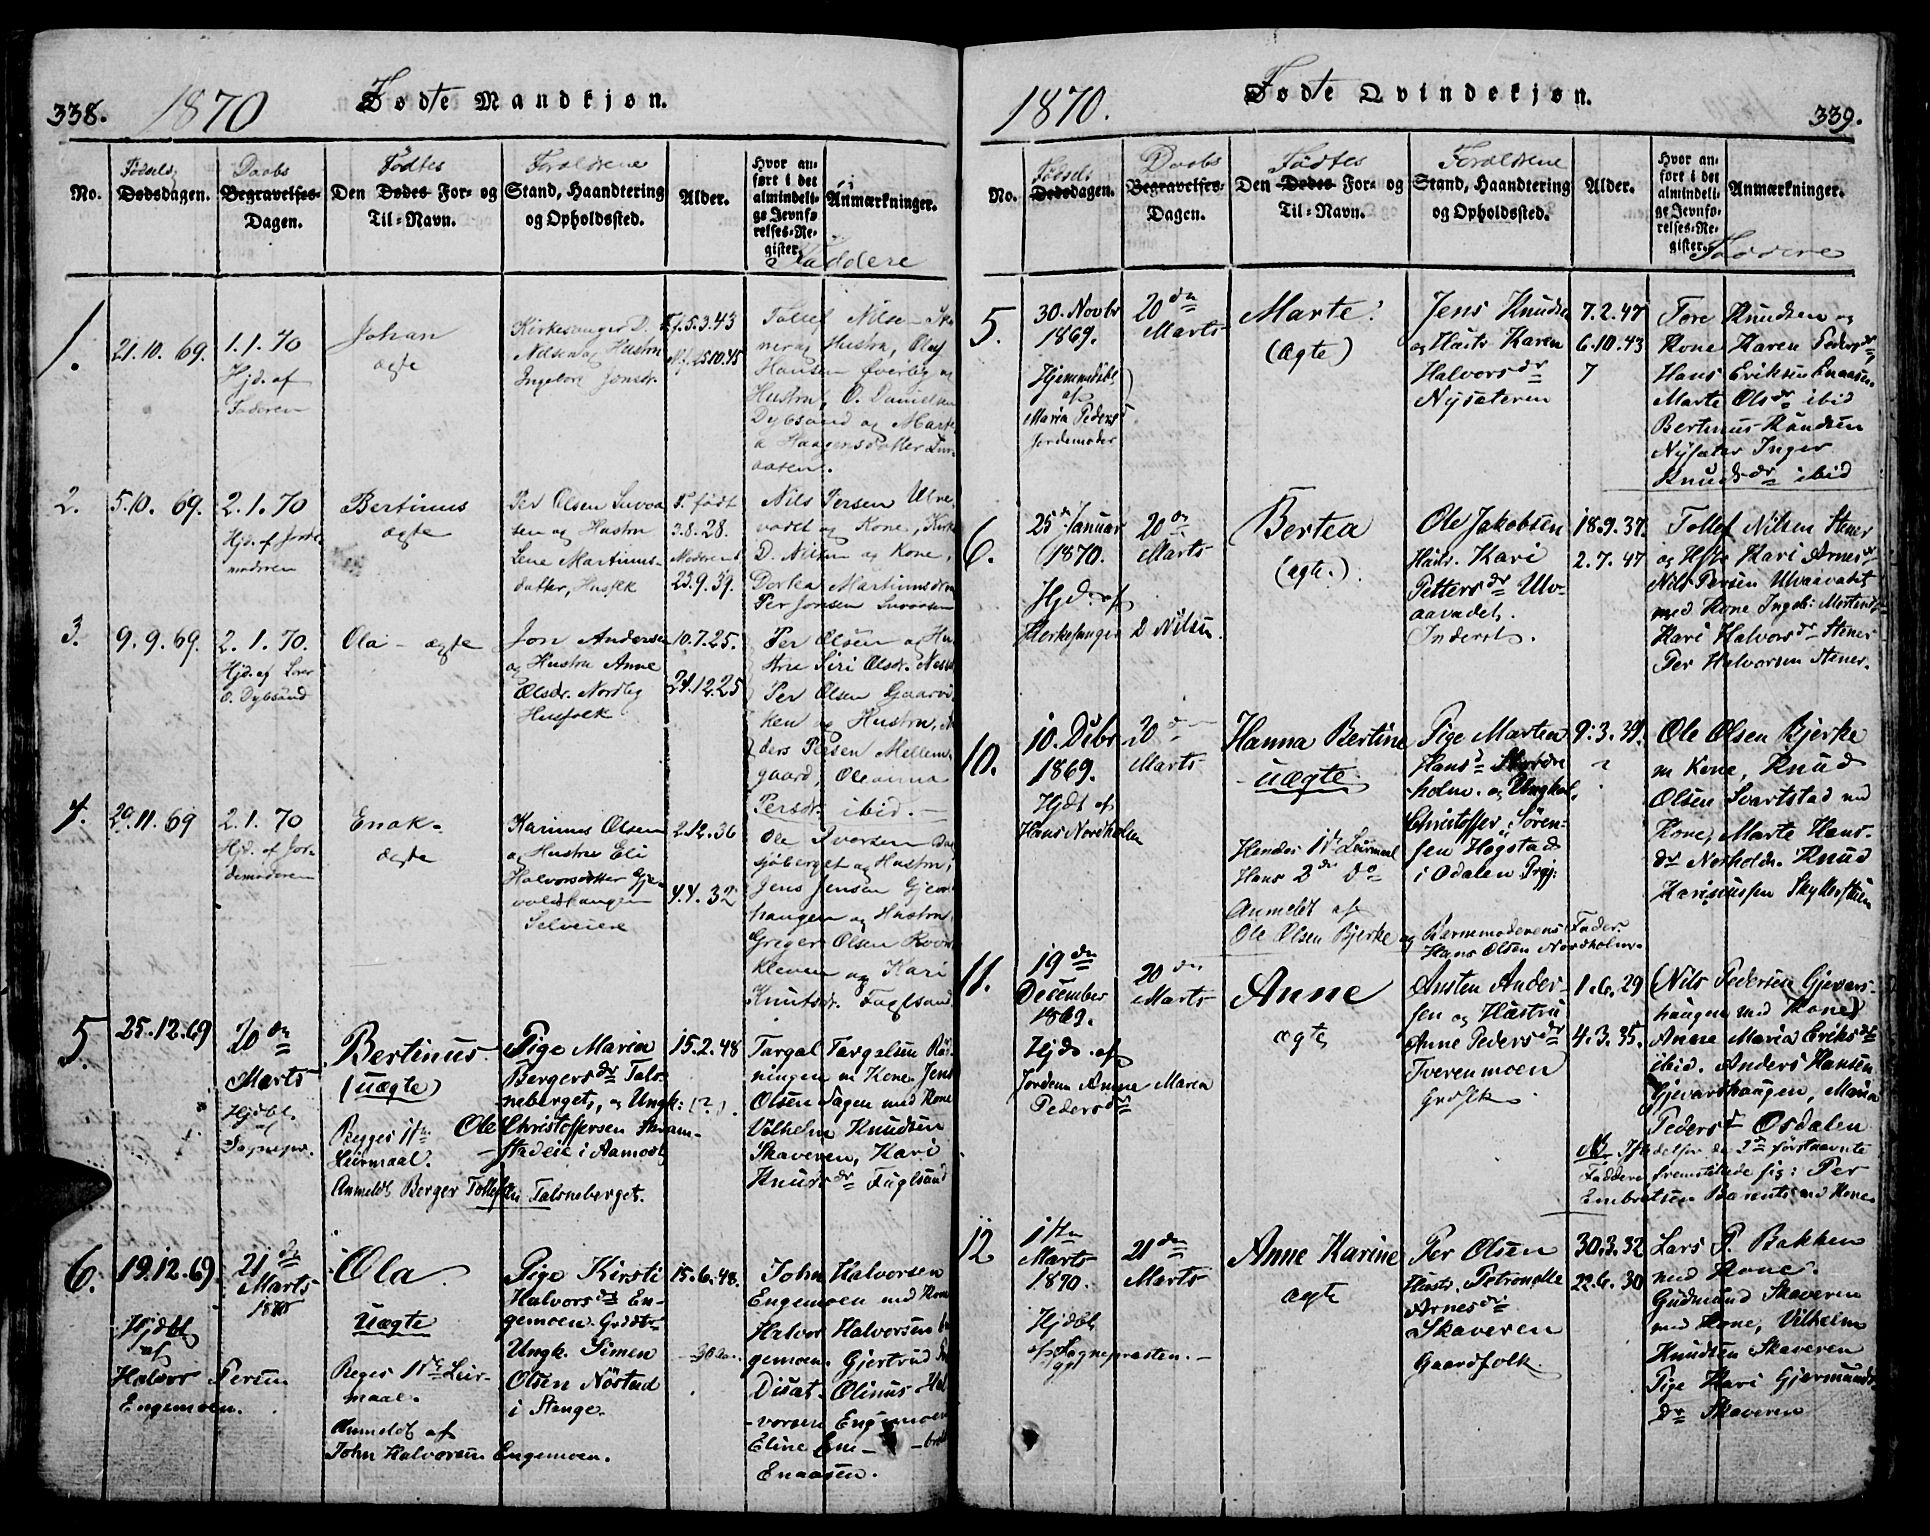 338.
1870
Fødte Mandkjøn.
No.
Fødsels
Dødsdagen.
Daabs
Begravelses-
Dagen.
Fødtes
Den Dødes For- og
Til-Navn.
Forældrene
Stand, Haandtering
og Opholdssted.
Alder.
Hvor an-
ført i det
almindeli-
ge Jevnfø-
relses-Re-
gister.
Anmærkninger.
Faddere
1.
21.10. 69.
1.1.70
Hjd. af
Faderen
Johan
ægte
Kirkesanger D.
Nilsen og Hustru
Ingebor Jonsdr.
F. f. 5.3.43
M. f. 25.10.45
Tollef Nilsen
og Hustru, Oluf
Hansen Øverlig og
Hustru, O. Danielsen
Dybsand og Marte
Haagensdatter
aasen.
2.
5.10. 69.
2.1.70
Hjd. af Jorde-
moderen
Bertinus
ægte
Per Olsen
sen og Hustru
Lene Martinus-
datter, Husfolk
F. født
3.8.28.
Moderen
23.9.39.
Nils Persen Ulve-
vadet og Kone, Kirk
D. Nilsen og Kone,
Dortea Martinusdtr
Per Jonsen
3.
9.9.69.
2.1.70.
Hjd. af
O. Dybsand
Ola - ægte
Jon Andersen
og Hustru Anne
Olsdr. Nordlig
Husfolk
10.7.25.
24.12.25
Per Olsen og Hu-
stru Siri Olsdr.
Per Olsen Gaarvi
ken og Hustru, An
ders Persen Mellem-
gaard, Oleanna
Persdr. ibid. —
4.
29.11.69
2.1.70
Hjd. af Jor-
demoderen
Enok -
ægte
Karinus Olsen
og Hustru Eli
Halvorsdatter Gje-
valdshaugen
Selveiere
2.12.36
4.4.32
Ole Iversen
sjøberget og Hustru,
Jens Jensen
haugen og Hustru,
Greger Olsen
kleven og Kari
Knutsdr. Fuglsund
5.
25.12.69
20 de
Marts
Hjdbt.
af
Sognepr.
Bertinus
(uægte)
Begges 1ste
Leirmaal.
Pige Maria
Bergersdr Tals-
neberget, og Ungk:
Ole Christoffersen
stadeie i Aamodt
Anmeldt Berger Tollefsen Talsneberget.
15.2.48
(?)
Targal Targalsen Røs-
ningen m Kone. Jens
Olsen Sagen med Kone
Vilhelm Knudsen
Skaveren, Kari
Knudsdr Fuglsund
6.
19.12.69.
Hjdbt
af
Halvor Persen
Engemoen.
21 de
Marts
1870
Ola
Uægte
Beges 1ste Leir-
maal.
Anmeldt af
John Halvorsen Engemoen.
Pige Kirsti
Halvorsdr En-
gemoen.
Ungk. Simen
Olsen Nøstad
i Stange.
15.6.48.
John Halvorsen
Engemoen med Kone
Halvor Halvorsen En
gemoen. Gjertrud
Disæt. Olinus Hal
vorsen Engemoen
Eline Em— —bret
Enaasen.
339.
1870.
Fødte Qvindekjøn.
No.
Fødsels
Dødsdagen.
Daabs
Begravelses-
Dagen.
Fødtes
Den Dødes For- og
Til-Navn.
Forældrene
Stand, Haandtering
og Opholdssted.
Alder.
Hvor an-
ført i det
almindeli-
ge Jevnfø-
relses-Re-
gister.
Anmærkninger.
Faddere
5.
30. Novbr
1869.
Hjemmedøbt
af
Maria Peders
Jordemoder
20 de
Marts
Marte
(Ægte)
Jens Knudsen
og Hustr Karen
Halvorsdr
Nysæteren
7.2.47
6.10.43
7
Tore Knudsen og
Kone Karen Pedersdr
Hans Eriksen Enaasen
Marte Olsdr ibid
Bertinus Knudsen
Nysæter Inger
Knudsdr ibid
6.
25de Januar
1870.
Hjd. af
Kirkesanger D Nilsen.
20de
Marts
Bertea
(ægte.)
Ole Jakobsen
Hustr. Kari
Pettersdr Ulv-
aavadet.
Inderst.
18.9.37.
2.7.47
Tollef Nilsen Stener
og Hstr Kari Arnesdr
Nils Persen Ulvaavadet
med Kone Ingeb: Mortensdr
Kari Halvorsdr Stener
Per Halvorsen Stener.
10.
10. Dcbr
1869.
Hjdt af
Hans Nordholm
20 de
Marts
Hanna Bertine
uægte.
Hendes 1ste Leirmaal
Hans 2det do
Anmeldt af
Ole Olsen Bjerke og Barnemoderens Fader
Hans Olsen Nordholm.
Pige Martea
Hansd
holm. og Ungkarl,
Christoffer Søren-
sen Hogstad
i Odalen Prgj:
9.3.39.
?
Ole Olsen Bjerke
m Kone, Knud
Olsen Svartstad md
Kone, Marte Hans-
dr Norholm. Knud
Kariniussen
11.
19 de
December
1869.
Hjd. af
Jordem Anne Maria
Pedersdr
20 de
Marts
Anne
ægte
Østen Ander-
sen og Hustru
Anne Pedersdr
Tverenmoen
Grdfolk.
1.6.29
4.3.35.
(Nils Pedersen Gjevars-
haugen med Kone)
Anne Maria Eriksdr
ibid. Anders Hansen
Gjevarshaugen, Maria
Pedersdr Osdalen
NB Istedetfor de 2de førstnævnte
Faddere fremstillede sig: Per
Embretsen Barents med Kone
12
1ste
Marts
1870.
Hjdbt.
af Sognepresten. —
21 de
Marts
Anne Karine
ægte
Per Olsen
Hustr. Petronelle
Arnesdr
Skaveren
Gaardfolk.
30.3.32
22.6.30
Lars P. Bakken
med Kone.
Gudmund Skaveren
med Kone, Vilhelm
Knudsen Skaveren
Pige Kari Gjermunds
dr Skaveren